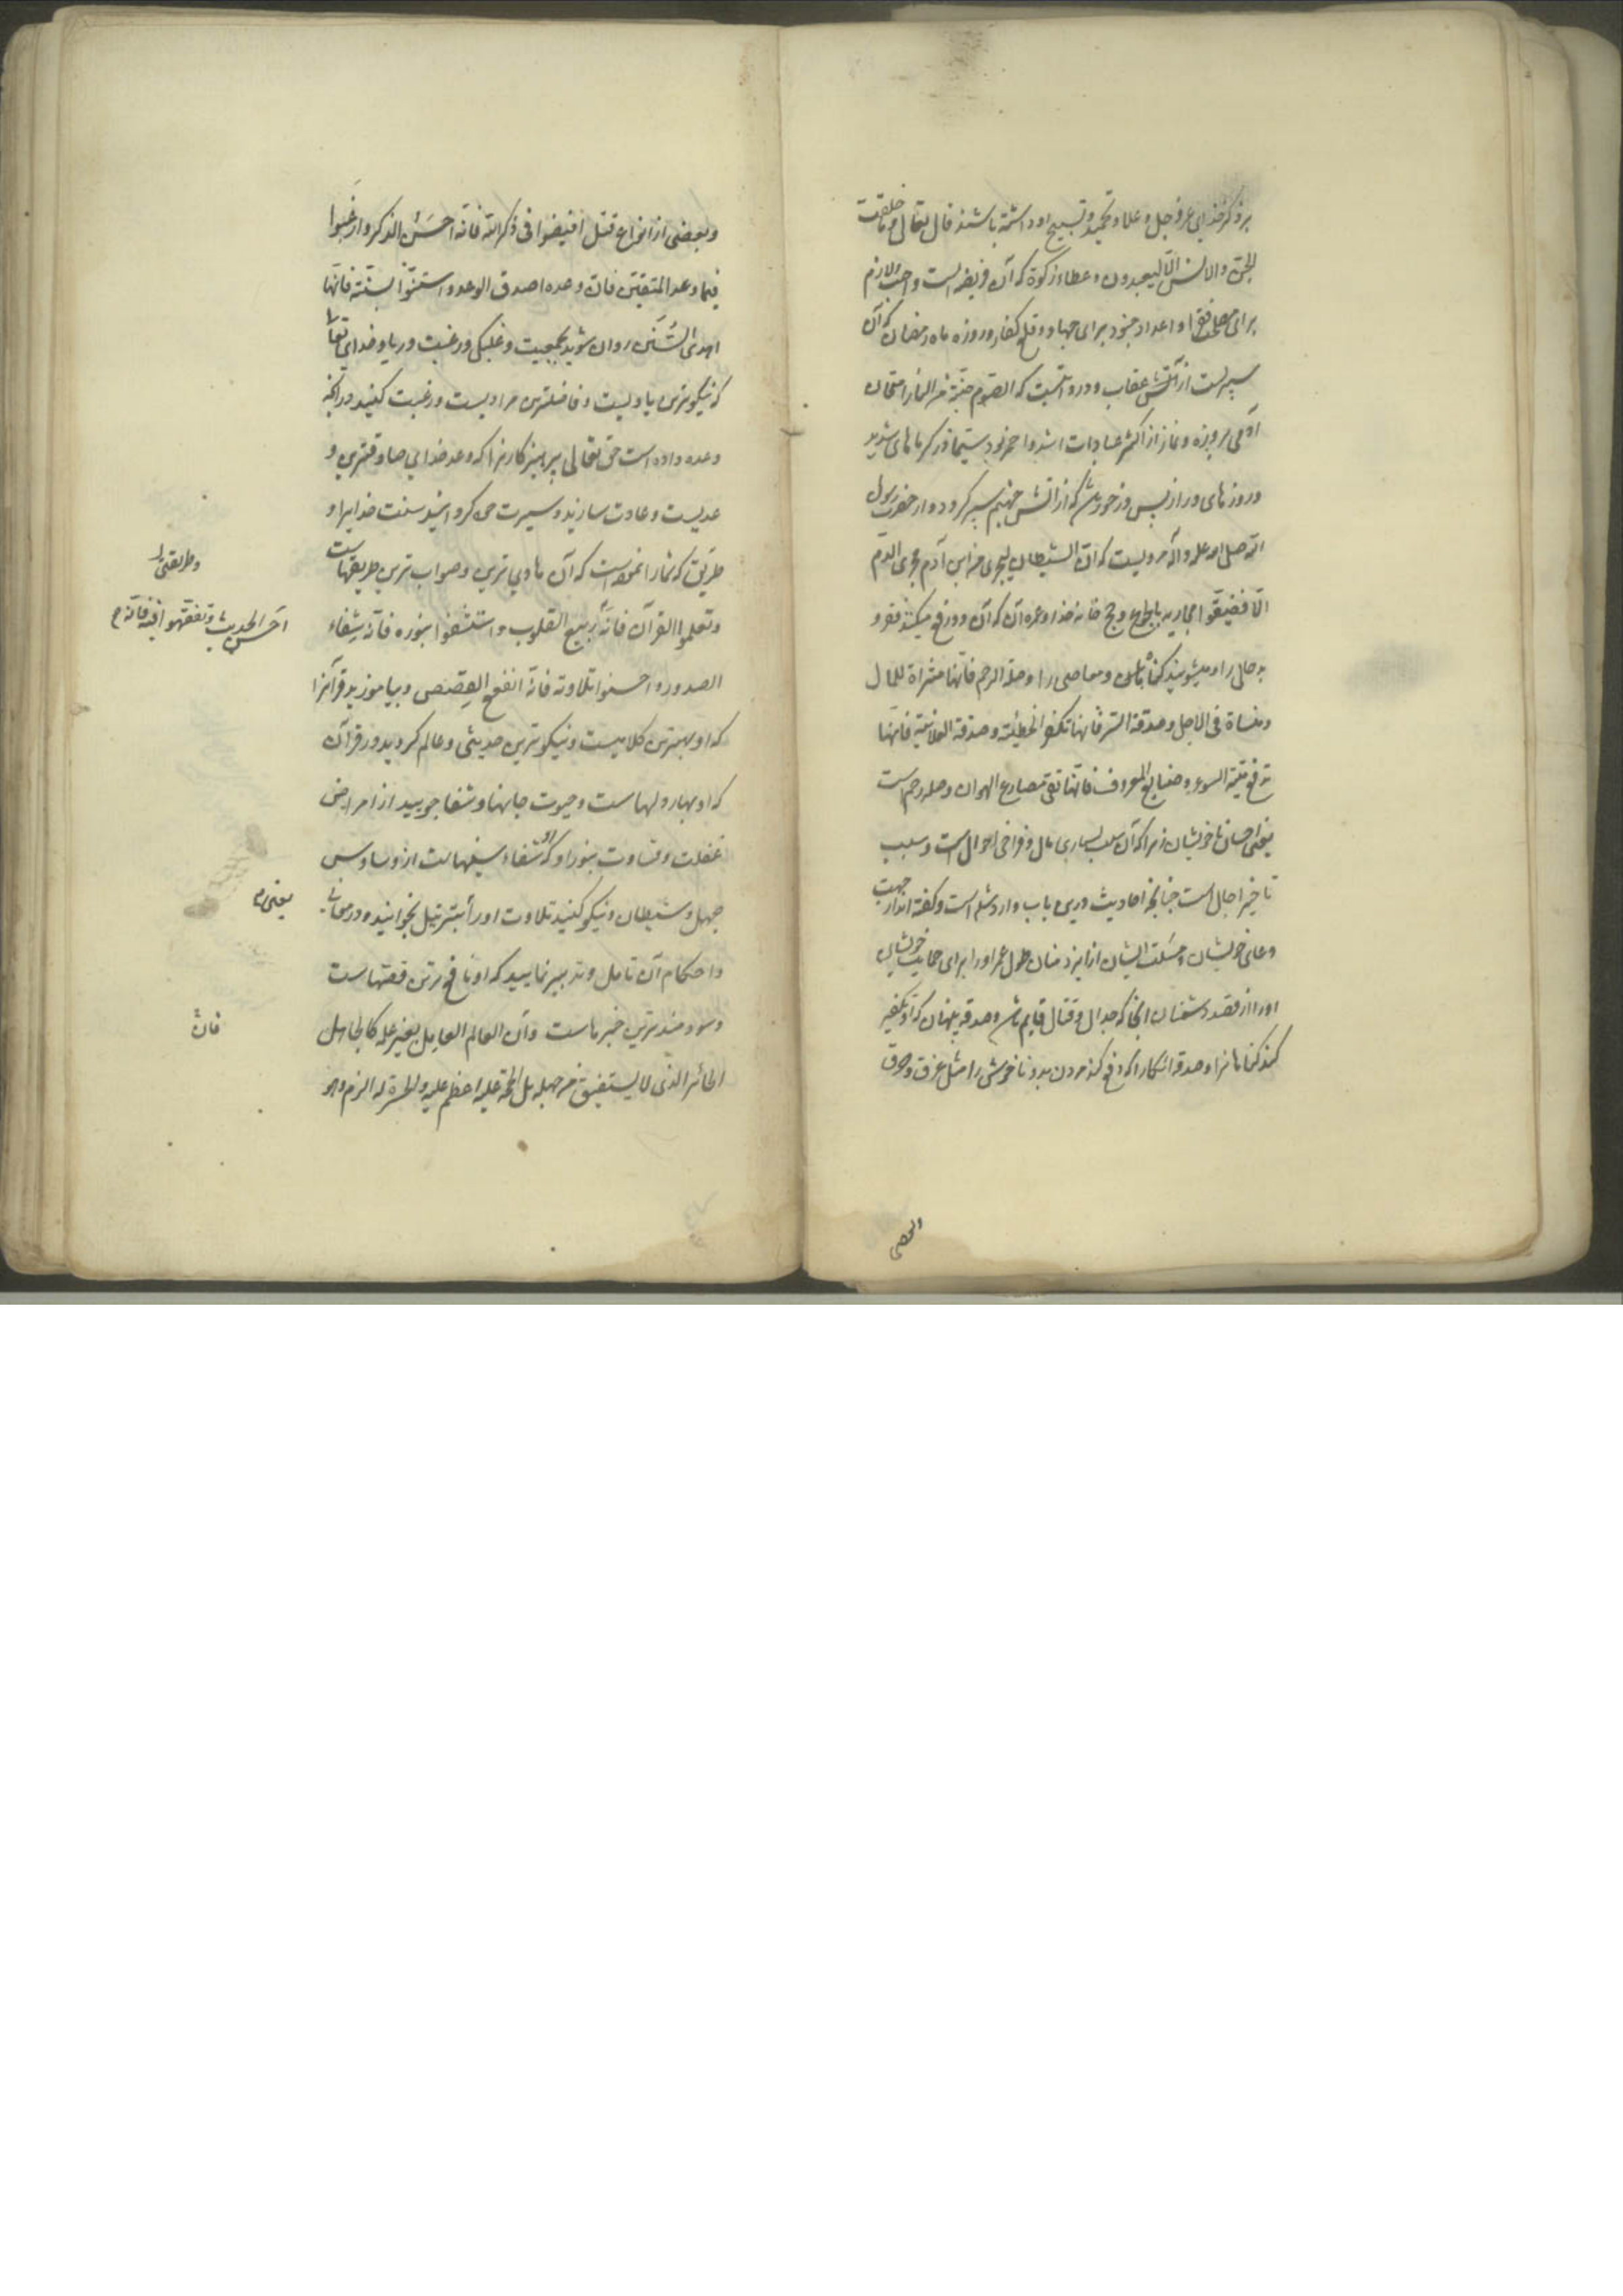 بر ذکر خدای عز و جل و علا و تحمید و تسبیح او داشته باشند قال تعالی و ما خلقت
الجن والانس الا لیعبدون و اعطاء زکوة که آن فریضه است واجب و لازم
برای فقرا و اعداد جنود برای جهاد و قلع کفار و روزه ماه رمضان که آن
سپریست از آتش عقاب و در روایتست که الصوم جنة من النار امتحان
آدمی بروزه و نماز از اکثر عبادات اشد و احمز بود سیما در گرماهای شدید
و روزهای دراز پس جهنم سپر کردد و از حضرت رسول
الله صلی الله علیه و آله مرویست که ان الشیطان لیجری من ابن آدم مجری الدم
الا فضیقوا مجاریه بالجوع و حج خانه خدا و عمره آن که آن دو رفع میکنند فقر و
بد حالی را و میشویند کناهان و معاصی را و صلة الرحم فانها مثراة للمال
و منساة فی الاجل و صدقة السر فانها تکفر الخطیئة و صدقة العلانیة فانها
تدفع میتة السوء و صنایع المعروف فانها تقی مصارع الهوان و صله رحم است
یعنی احسان با خویشان زیرا که آن سبب بسیاری مال و فراخی احوال است و سبب
تاخیر اجال است چنانچه احادیث درین باب وارد شده است و کفته اند از جهت
دعای خویشان و مسئلت ایشان از ایزد منان طول عمر او را برای حمایت خویشان
او را از قصد دشمنان انجا که جدال و قتال قایم باشد و صدقه پنهان که او تکفیر
کند کناهانرا و صدقه اشکارا که دفع کند مردن بد و ناخوش را مثل غرق و حرق
و بعضی از انواع قتل افیضوا فی ذکر الله فانه احسن الذکر وارغبوا
فیما وعد المتقین فان وعده اصدق الوعد و استنوا بسنته فانها
اهدی السنن روان شوید بجمعیت و غلبکی و رغبت در یاد خدای تعالی
که نیکوترین یادیست و فاضلترین مرادیست و رغبت کنید در انچه
وعده داده است حق تعالی پرهیزکارنرا که وعد خدای صادقترین و
عدیست و عادت سازید و سیرت خی کردانید سنت خدایرا و
طریق که شما را نموده است که آن هادی ترین و صواب ترین طریقهاست
و طریقتی را
و تعلموا القرآن فانه ربیع القلوب و استشفوا بنوره فانه شفاء
احسن الحدیث و تفقهوا فیه فانه
الصدور و احسنوا تلاوته فانه انفع القصص و بیاموزید قرآنرا
که او بهترین کلامیست و نیکوترین حدیثی و عالم کردید در قرآن
که او بهار دلهاست و حیوت جانها و شفا جویید از امراض
غفلت و قساوت بنور او که او شفاء سینهاست از وساوس
جهل و شیطان و نیکو کنید تلاوت او را بترتیل بخوانید و در معانی
یعنی
و احکام آن تامل و تدبیر نمایید که او نافع ترین قصهاست
و سودمندترین خبرهاست وان العالم العامل بغیر علمه کالجاهل
فان
الحائر الذی لا یستفیق من جهله بل الحجة علیه اعظم علیه و الحسرة له الزم و هو